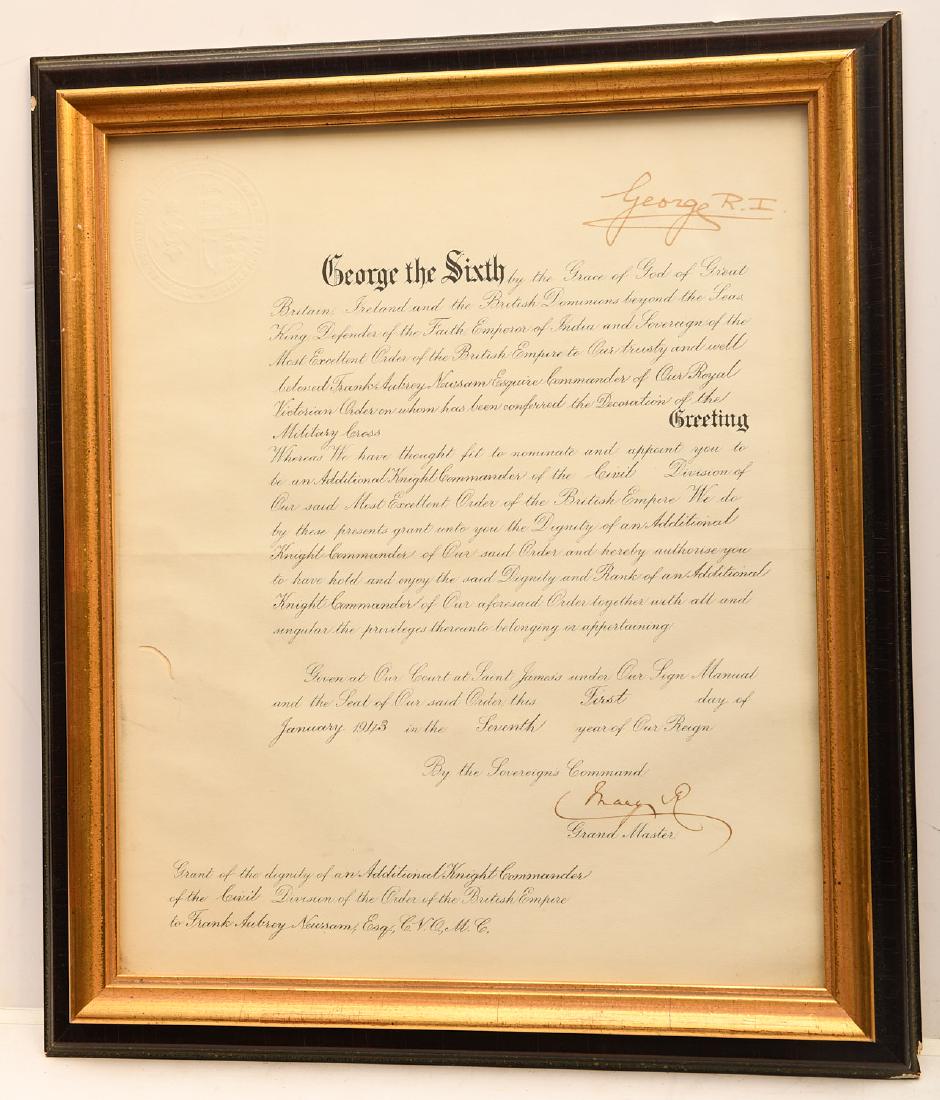 George R.I.
George the Sixth by the Grace of God of Great
Britain, Ireland and the British Dominions beyond the Seas,
King, Defender of the Faith, Emperor of India and Sovereign of the
Most Excellent Order of the British Empire to Our trusty and well
beloved Frank Aubrey Newsam Esquire Commander of Our Royal
Victorian Order on whom has been conferred the Decoration of the
Military Cross Greeting
Whereas We have thought fit to nominate and appoint you to
be an Additional Knight Commander of the Civil Division of
Our said Most Excellent Order of the British Empire We do
by these presents grant unto you the Dignity of an Additional
Knight Commander of Our said Order and hereby authorise you
to have hold and enjoy the said Dignity and Rank of an Additional
Knight Commander of Our aforesaid Order together with all and
singular the privileges thereunto belonging or appertaining
Given at Our Court at Saint James's under Our Sign Manual
and the Seal of Our said Order this First day of
January 1943 in the Seventh year of Our Reign
By the Sovereign's Command
Mary R
Grand Master
Grant of the dignity of an Additional Knight Commander
of the Civil Division of the Order of the British Empire
to Frank Aubrey Newsam, Esq., C.V.O., M.C.